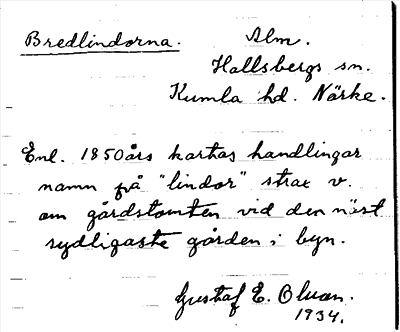 Bredlindorna.
Alm.
Hallsbergs sn.
Kumla hd. Närke.
Enl. 1850 års kartas handlingar
namn på "lindor" strax v.
om gårdstomten vid den näst
sydligaste gården i byn.
Gustaf E. Olsson.
1934.